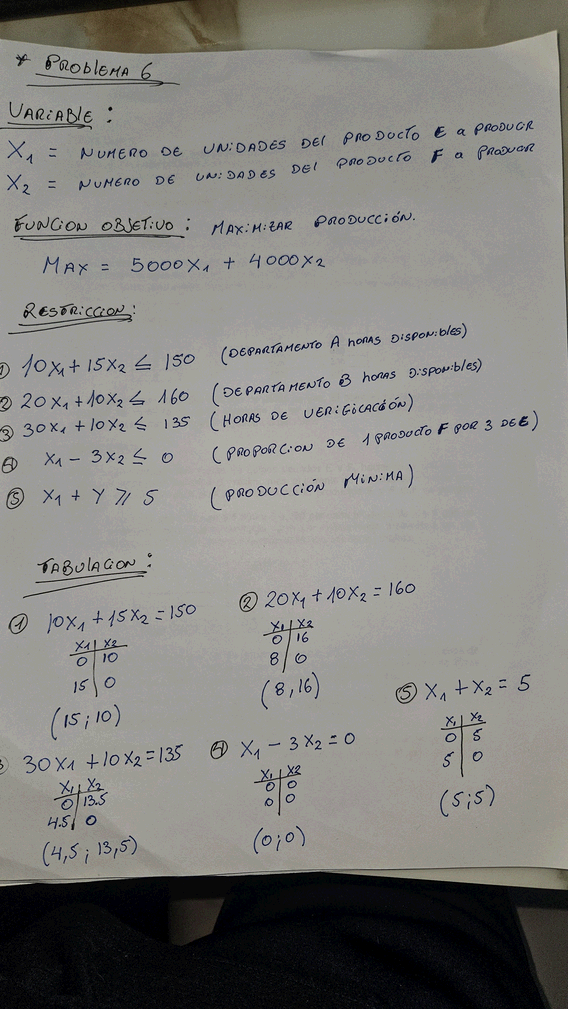 * PROBLEMA 6
VARIABLE:
X1 = NUMERO DE UNIDADES DEL PRODUCTO E a PRODUCIR
X2 = NUMERO DE UNIDADES DEL PRODUCTO F a PRODUCIR
FUNCION OBJETIVO: MAXIMIZAR PRODUCCIÓN.
MAX = 5000X1 + 4000X2
RESTRICCION:
① 10X1 + 15X2 ≤ 150 (DEPARTAMENTO A HORAS DISPONIBLES)
② 20X1 + 10X2 ≤ 160 (DEPARTAMENTO B HORAS DISPONIBLES)
③ 30X1 + 10X2 ≤ 135 (HORAS DE VERIGICACCIÓN)
④ X1 - 3X2 ≤ 0 (PROPORCION DE 1 PRODUCTO F POR 3 DE E)
⑤ X1 + Y ≥ 5 (PRODUCCIÓN MINIMA)
TABULACION:
① 10X1 + 15X2 = 150
X1 | X2
0 | 10
15 | 0
(15; 10)
② 20X1 + 10X2 = 160
X1 | X2
0 | 16
8 | 0
(8, 16)
⑤ X1 + X2 = 5
X1 | X2
0 | 5
5 | 0
(5; 5)
3 30X1 + 10X2 = 135
X1 | X2
0 | 13.5
4.5 | 0
(4,5; 13,5)
④ X1 - 3X2 = 0
X1 | X2
0 | 0
0 | 0
(0; 0)